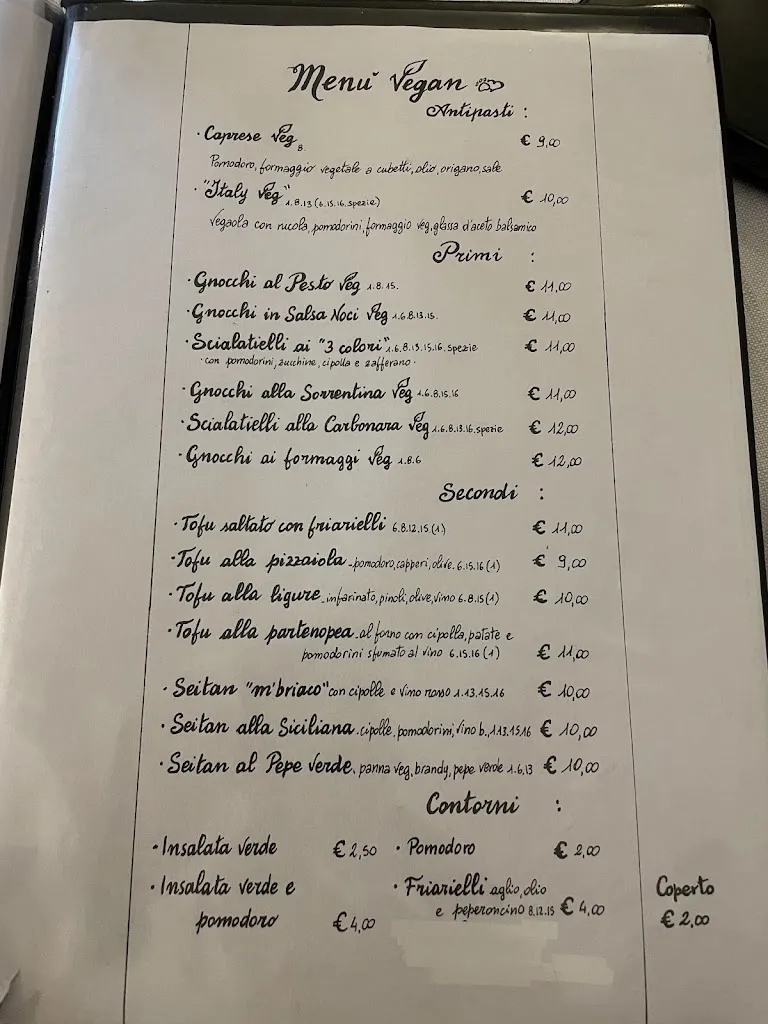 Menu' Vegan
Antipasti :
· Caprese Veg 8. € 9,00
Pomodoro, formaggio vegetale a cubetti, olio, origano, sale
· "Italy Veg" 1.8.13 (6.15.16.spezie) € 10,00
Vegaola con rucola, pomodorini, formaggio veg, glassa d'aceto balsamico
Primi :
· Gnocchi al Pesto Veg 1.8.15. € 11,00
· Gnocchi in Salsa Noci Veg 1.6.8.13.15. € 11,00
· Scialatielli ai "3 colori" 1.6.8.13.15.16.spezie € 11,00
· con pomodorini, zucchine, cipolla e zafferano ·
· Gnocchi alla Sorrentina Veg 1.6.8.15.16 € 11,00
· Scialatielli alla Carbonara Veg 1.6.8.13.16.spezie € 12,00
· Gnocchi ai formaggi Veg 1.8.6 € 12,00
Secondi :
· Tofu saltato con friarielli 6.8.12.15 (1) € 11,00
· Tofu alla pizzaiola - pomodoro, capperi, olive. 6.15.16 (1) € 9,00
· Tofu alla ligure - infarinato, pinoli, olive, vino 6.8.15 (1) € 10,00
· Tofu alla partenopea - al forno con cipolla, patate e
pomodorini sfumato al vino 6.15.16 (1) € 11,00
· Seitan "m'briaco" con cipolle e vino rosso 1.13.15.16 € 10,00
· Seitan alla Siciliana. cipolle, pomodorini, vino b., 1.13.15.16 € 10,00
· Seitan al Pepe Verde, panna veg, brandy, pepe verde 1.6.13 € 10,00
Contorni :
· Insalata verde € 2,50 · Pomodoro € 2,00
· Insalata verde e
pomodoro € 4,00
· Friarielli aglio, olio
e peperoncino 8.12.15 € 4,00
Coperto
€ 2,00